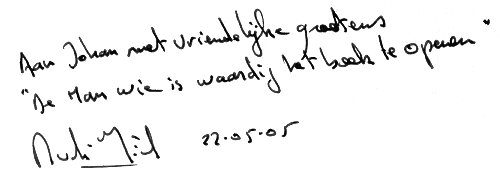 Aan Johan met vriendelijke groetens
"De Man wie is waardig het boek te openen"
22.05.05